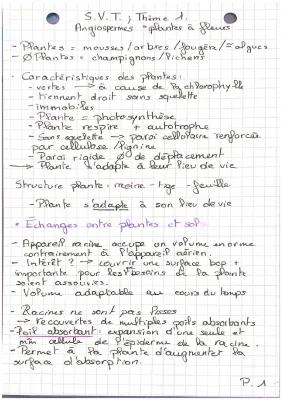 S.V.T ; Thème 1.
Angiospermes = plantes à fleurs
- Plantes = mousses / arbres / fougère / ≈ algues
- Ø Plantes = champignons / lichens
• Caractéristiques des plantes:
- vertes → à cause de la chlorophylle
- tiennent droit sans squelette
- immobiles
- Plante = photosynthèse
- Plante respire + autotrophe
- Sans squelette → paroi cellulaire renforcée
par cellulose / lignine
- Paroi rigide Ø de déplacement
→ Plante s'adapte à leur lieu de vie
Structure plante: racine - tige - feuille
- Plante s'adapte à son lieu de vie
• Echanges entre plantes et sol
- Appareil racine occupe un volume enorme
contrairement à l'appareil aérien.
- Intérêt ? → couvrir une surface bcp +
importante pour les besoins de la plante
soient assouvies.
- Volume adaptable au cours du temps
- Racines ne sont pas lisses
→ recouvertes de multiples poils absorbants
- Poil absorbant: expansion d'une seule et
mm cellule de l'épiderme de la racine.
- Permet à la plante d'augmenter la
surface d'absorption.
P. 1